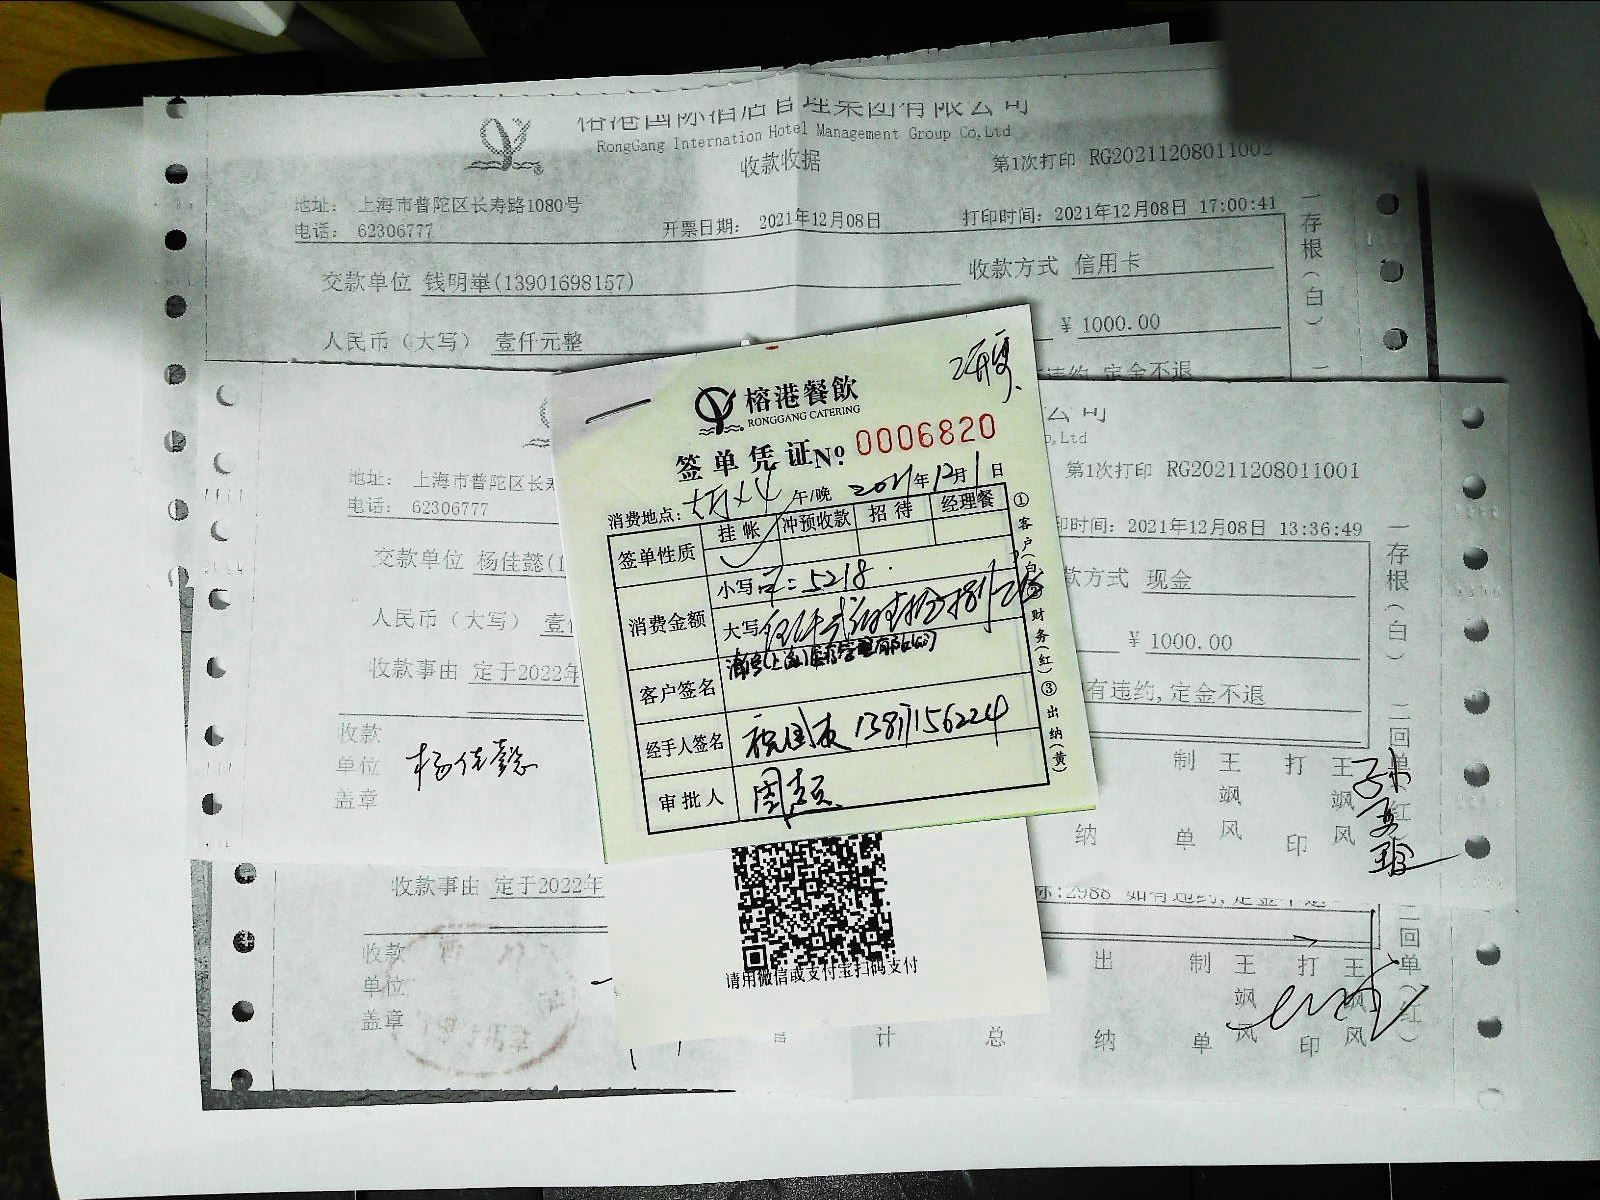 榕港国际酒店管理集团有限公司
RongGang Internation Hotel Management Group Co,Ltd
收款收据
第1次打印 RG20211208011002
地址： 上海市普陀区长寿路1080号
电话： 62306777
开票日期： 2021年12月08日
打印时间：2021年12月08日 17:00:41
交款单位 钱明崋(13901698157)
收款方式 信用卡
人民币（大写） 壹仟元整
¥ 1000.00
违约,定金不退
一存根（白）
榕港餐飲
RONGGANG CATERING
签单凭证 No. 0006820
消费地点： 午/晚 2021年12月1日
签单性质 挂帐 冲预收款 招待 经理餐
消费金额
小写 5218.
大写
客户签名
经手人签名 13817156224
审批人
①客户(白) 财务(红) ③出纳(黄)
请用微信或支付宝扫码支付
公司
o,Ltd
第1次打印 RG20211208011001
地址： 上海市普陀区长寿
电话： 62306777
印时间：2021年12月08日 13:36:49
交款单位 杨佳懿(1
款方式 现金
人民币（大写） 壹仟
¥ 1000.00
收款事由 定于2022年
有违约,定金不退
一存根（白） 二回单（红）
收款单位盖章
杨佳懿
纳
制单 王飒风
打印 王飒风
收款事由 定于2022年
标:2988 如有违约,定金不退
收款单位盖章
计
总
出纳
制单 王飒风
打印 王飒风
二回单（红）